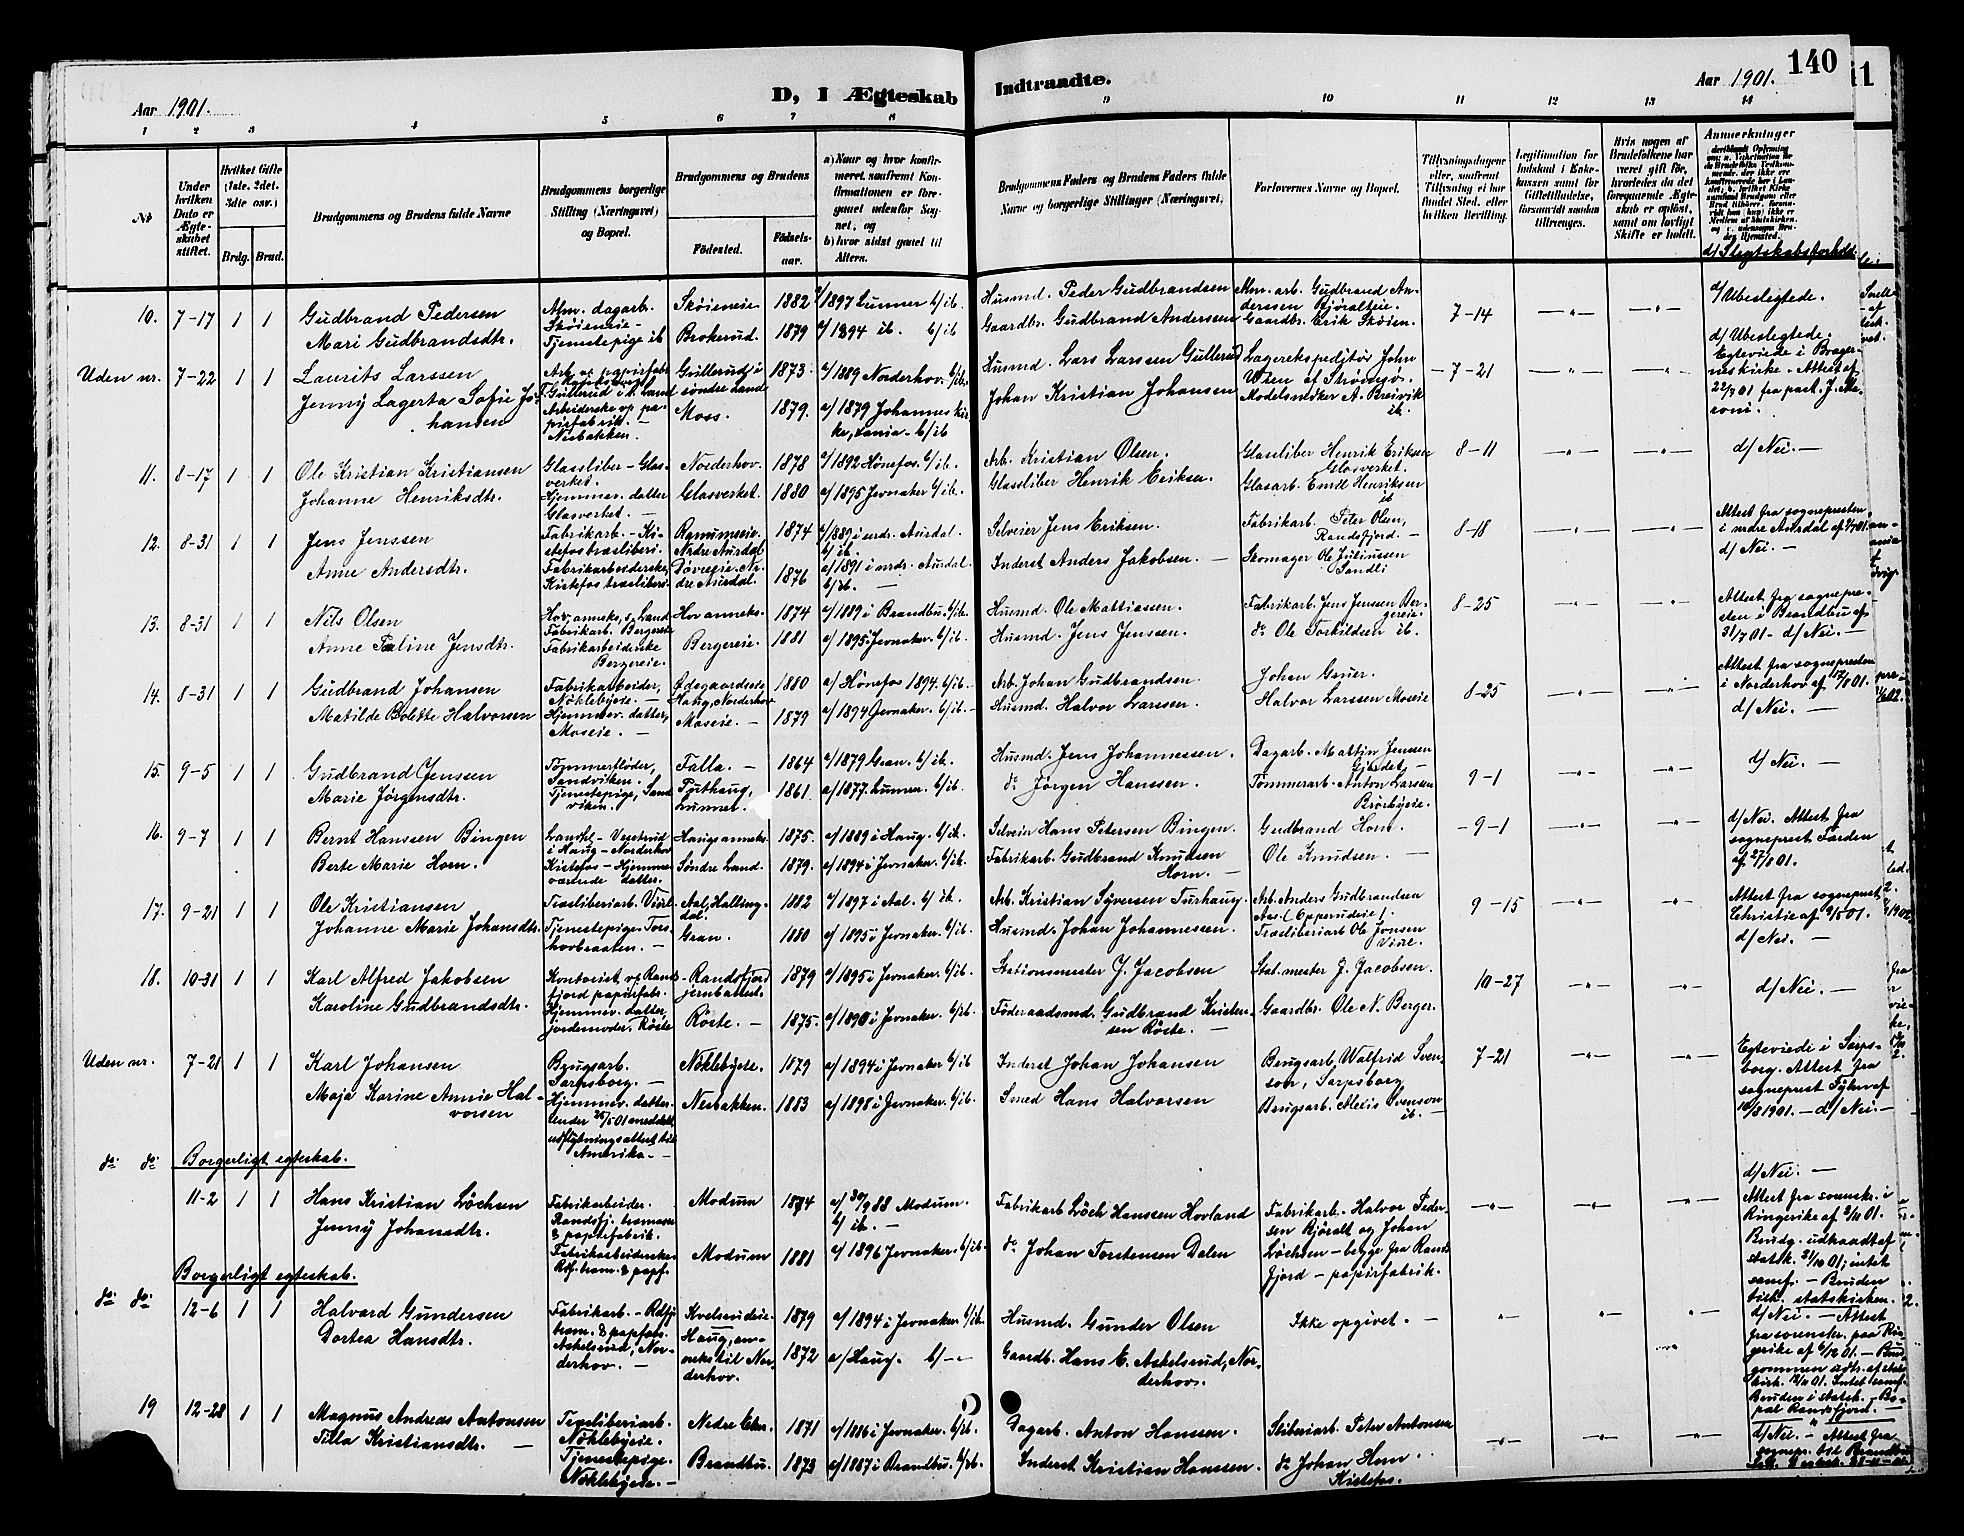 140
Aar 1901.
D, I Ægteskab Indtraadte.
Aar 1901.
1 2 3 4 5 6 7 8 9 10 11 12 13 14
No
Under hvilken Dato er Ægteskabet stiftet.
Hvilket Gifte (1ste. 2det. 3die osv.)
Brdg. Brud.
Brudgommens og Brudens fulde Navne
Brudgommens borgerlige Stilling (Næringsvei) og Bopæl.
Brudgommens og Brudens
Födested.
Födselsaar.
a) Naar og hvor konfirmeret, saafremt Konfirmationen er foregaaet udenfor Sognet, og
b) hvor sidst gaaet til Alters.
Brudgommens Faders og Brudens Faders fulde Navne og borgerlige Stillinger (Næringsvei)
Forlovernes Navne og Bopæl.
Tillysningsdagene eller, saafremt Tillysning ei har fundet Sted, efter hvilken Bevilling.
Legitimation for Indskud i Enkekassen samt for Giftetilladelse, forsaavidt saadan tiltrænges.
Hvis nogen af Brudefolkene har været gift før, hvorledes da det foregaaende Ægteskab er oplöst, samt om lovligt Skifte er holdt.
Anmerkninger
d/ Slegtskabsforhold
10. 7-17 1 1 Gudbrand Pedersen
Alm. dagarb. Skøieneie
Skøieneie 1882 a/ 1897 Lunner b/ ib.
Husmd. Peder Gudbrandsen
Alm. arb. Gudbrand Anderssen Bjøralteie.
7-14
d/ Ubeslegtede.
Mari Gudbrandsdtr.
Tjenestepige ib
Brokerud. 1879 a/ 1894 ib. b/ ib
Gaardbr. Gudbrand Andersen
Gaardbr. Erik Skøien.
Uden nr. 7-22 1 1 Laurits Larssen
Gullerud i søndre Land 1873 a/ 1889 Norderhov. b/ ib.
Husmd. Lars Larssen Gullerud
Lagerekspeditør John Wien af Strømsø.
7-21
d/ Ubeslegtede. Egteviede i Bragerneskirke - Attest af 22/7 01 fra past.
Jenny Lagerta Sofie Johansen
Arbeiderske op papirfabrik. Nesbakken.
Moss. 1879. a/ 1879 Johannes kirke, b/ ib
Johan Kristian Johansen
Modelsnedker A. Breivik ib.
11. 8-17 1 1 Ole Kristian Kristiansen
Glassliber - Glasverket.
Norderhov. 1878 a/ 1892 Hønefos. b/ ib.
Arb. Kristian Olsen.
Glassliber Henrik Eriksen Glasverket.
8-11
d/ Nei. -
Johanne Henriksdtr.
Hjemmev. datter Glasverket. -
Glasverket. 1880 a/ 1895 Jevnaker b/ ib.
Glassliber Henrik Eriksen.
Glasarb. Emil Henriksen ib
12. 8-31 1 1 Jens Jenssen
Fabrikarb. - Kistefos træsliberi.
Nordre Aurdal 1874 a/ 1889 i nrdr. Aurdal. b/ ib.
Selveier Jens Eriksen.
Fabrikarb. Peter Olsen, Randsfjord. -
8-18
Attest fra sognepresten i nrdre Aurdal af 7/7 01. d/ Nei. -
Anne Andersdtr.
Fabrikarbeiderske, Kistefos træsliberi.
Døvreeie. Nrdre Aurdal. 1876 a/ 1891 i nrdr. Aurdal b/ ib. -
Inderst Anders Jakobsen. -
Skomager Ole Juliussen Sandli
13. 8-31 1 1 Nils Olsen
Hov. anneks, s. Land Fabrikarb. Bergereie
Hov anneks. 1874 a/ 1889 i Brandbu. b/ ib.
Husmd. Ole Mattiassen.
Fabrikarb. Jens Jenssen Bergereie.
8-25
Attest fra sognepresten i Brandbu af 31/7 01 - d/ Nei. -
Anne Paline Jensdtr.
Fabrikarbeiderske Bergereie.
Bergereie. 1881 a/ 1895 i Jevnaker. b/ ib.
Husmd. Jens Jenssen.
do Ole Torkildsen ib.
14. 8-31 1 1 Gudbrand Johansen
Fabrikarbeider, Nøklebyeie. -
Ødegaardseie Haug, Norderhov 1880 a/ Hønefos 1894. b/ ib.
Arb. Johan Gudbrandsen.
Johan Geuer.
8-25
Attest fra sognepresten i Norderhov af 17/8 01. d/ Nei. -
Matilde Bolette Halvorsen
Hjemmev. datter, Moseie. -
Moseie. - 1879 a/ 1894 Jevnaker. b/ ib. -
Husmd. Halvor Larssen.
Halvor Larssen Moseie
15. 9-5 1 1 Gudbrand Jenssen
Tømmerfløder, Sandviken.
Falla. - 1864 a/ 1879 Gran. b/ ib.
Husmd. Jens Johannessen.
Dagarb. Martin Jenssen Gjerdet, -
9-1
d/ Nei. -
Marie Jørgensdtr.
Tjenestepige, Sandviken.
Lunner. 1861. a/ 1877. Lunner. b/ ib.
do Jørgen Hanssen.
Tømmerarb. Anton Larssen Brørbyeie.
16. 9-7 1 1 Bernt Hanssen Bingen
Landhl. - Vesetrud i Haug - Norderhov
Haugs anneks. 1875. a/ 1889 i Haug. b/ ib.
Selveier Hans Petersen Bingen.
Gudbrand Horn.
9-1
d/ Nei. Attest fra sogneprest Farden af 27/8 01.
Berte Marie Horn.
Kistefos - Hjemmeværende datter.
Søndre Land. 1879. a/ 1894 i Jevnaker. b/ ib.
Fabrikarb. Gudbrand Knudsen Horn. -
Ole Knudsen. -
17. 9-21 1 1 Ole Kristiansen
Træsliberiarb. Viul.
Aal, Hallingdal. 1882 a/ 1897 i Aal. b/ ib.
Arb. Kristian Syversen Turhaug.
Arb. Anders Gudbrandsen Aas. (Opperudeie).
9-15
Attest fra sogneprest Christie af 9/8 01. d/ Nei. -
Johanne Marie Johansdtr.
Tjenestepige. Torshovbraaten. -
Gran. 1880 a/ 1895 i Jevnaker. b/ ib.
Husmd. Johan Johannessen.
Træsliberiarb Ole Jonsen Viul.
18. 10-31 1 1 Karl Alfred Jakobsen
Kontorist v. Randsfjord papirfabr.
Randsfjord jernbanest. 1879 a/ 1895 i Jevnaker. b/ ib.
Stationsmester J. Jacobsen
Stat.mester J. Jacobsen.
10-27
d/ Nei. -
Karoline Gudbrandsdtr.
Hjemmev. datter, jordemoder, Røste
Røste. - 1875. a/ 1890 i Jevnaker. b/ ib.
Føderaadsmd. Gudbrand Kristensen Røste. -
Gaardbr. Ole N. Berger.
Uden nr. 7-21 1 1 Karl Johansen
Brugsarb. Sarpsborg. -
Nøklebyeie. 1879 a/ 1894 i Jevnaker b/ ib
Inderst Johan Johansen
Brugsarb. Walfrid Svenson, Sarpsborg
7-21
Egteviede i Sarpsborg. Attest fra sogneprest Tyhn af 10/8 1901. - d/ Nei. -
Maja Karine Annie Halvorsen
Hjemmev. datter. under 25/5 01 meddelt udflytningsattest til Amerika. -
Nesbakken. 1883 a/ 1898 i Jevnaker. b/ ib.
Smed Hans Halvorsen
Brugsarb. Alexis Svenson ib. -
do. do. Borgerligt egteskab.
11-2 1 1 Hans Kristian Løchsen
Fabrikarbeider. Randsfj. træmasse & papirfabrik.
Modum 1874 a/ 30/9 88 Modum. b/ ib. -
Fabrikarb Løch Hanssen Hovland
Fabrikarb. Halvor Pedersen Bjøralt og Johan Løchsen - begge fra Randsfjord - papirfabrik.
d/ Nei. - Attest fra sorenskr. i Ringerike af 2/11 01. Brudg. udtraadt af statsk. 31/10 01; intet samf. - Bruden tilh. statskirken.
Jenny Johansdtr.
Fabrikarbeiderske Rdfj. træm. & papf.
Modum 1881 a/ 1896 Jevnaker. b/ ib.
do Johan Torstensen Dalen
Borgerligt egteskab.
do. do. 12-6 1 1 Halvard Gundersen
Fabrikarb. - Rdfj. træm. & papfabr.
1879 a/ 1894 i Jevnaker. b/ ib.
Husmd. Gunder Olsen
Ikke opgivet. -
d/ Nei. - Attest fra sorenskr. paa Ringerike af 6/12 01. - Brudgommen udtr. af statskirk. Intet samf. Bruden i statsk. - Bopæl Randsfjord. -
Dortea Hansdtr.
Askelsrud, Norderhov. -
Haug, anneks til Norderhov. 1872 a/ Haug. b/ -
Gaardb. Hans E. Askelsrud, Norderhov.
19 12-28 1 1 Magnus Andreas Antonsen
Træsliberiarb. Nøklebyeie.
Nedre Eker. 1871 a/ 1886 i Jevnaker. b/ ib.
Dagarb. Anton Hanssen.
Sliberiarb. Peter Antonsen
d/ Nei. - Attest fra sognepr. til Brandbu
Tilla Kristiansdtr. -
Tjenestepige. Nøklebyeie. -
Brandbu. 1873 a/ 1887 i Brandbu. b/ ib.
Inderst Kristian Hanssen.
do Johan Horn Kistefos.